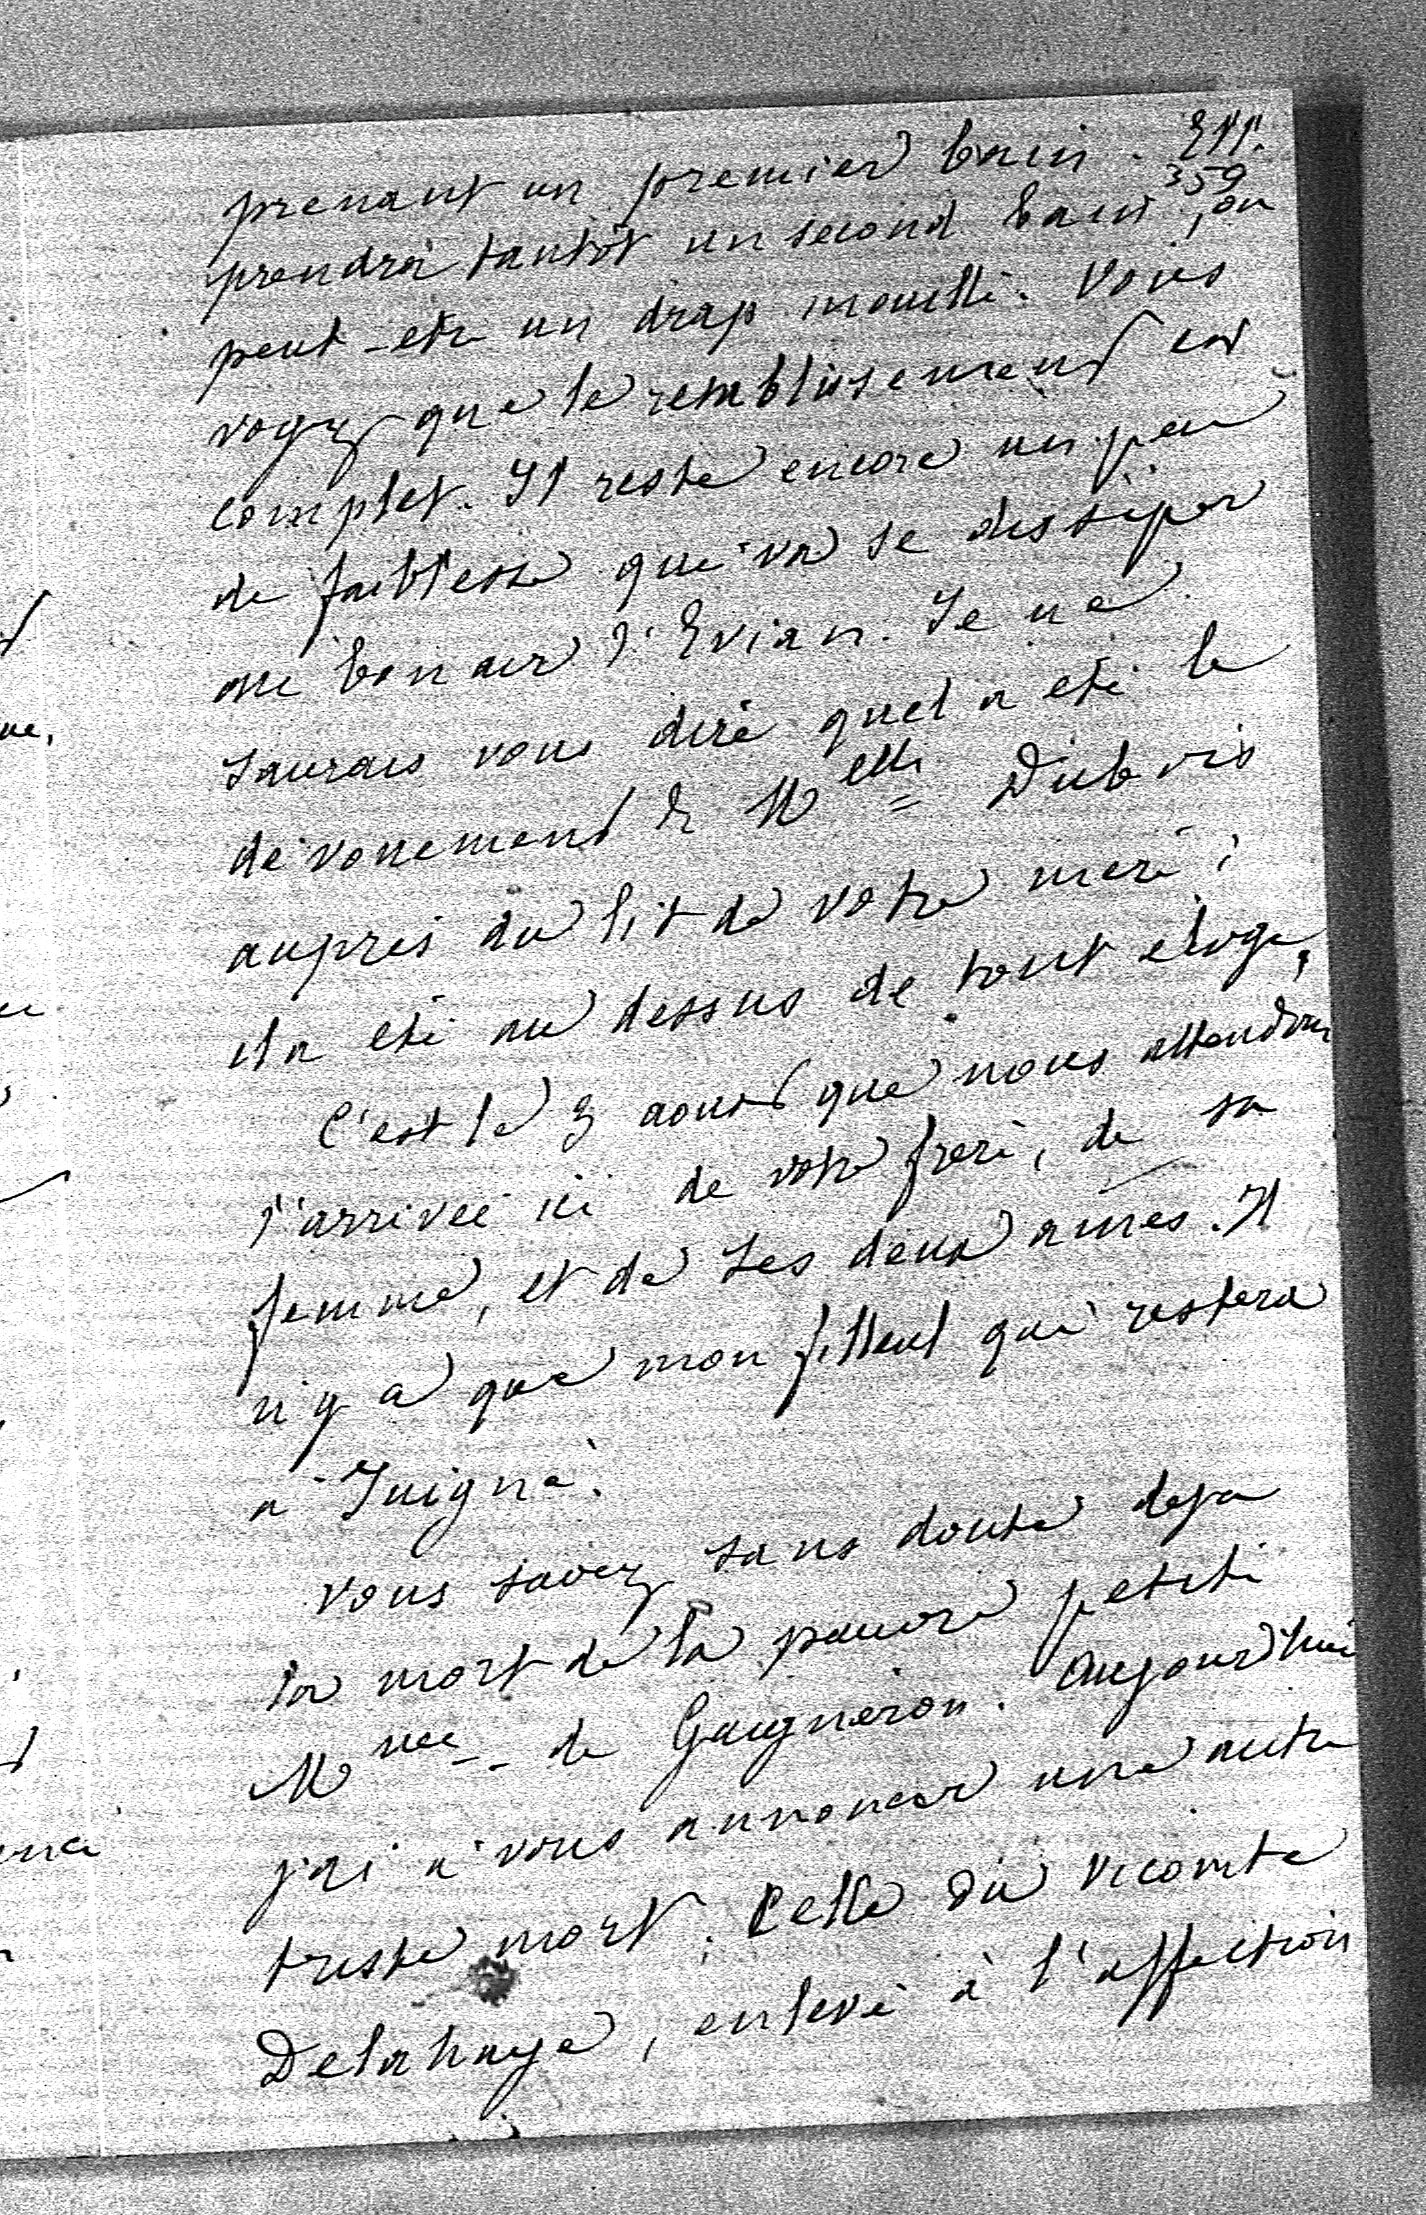 prenant un premier bain. Ell.
359
prendra tantôt un second bain, ou
peut-etre un drap mouillé. Vous
voyez que le remblissement est
complet. Il reste encore un peu
de faiblesse qui va se dissiper
au bon air d'Evian. Je ne
saurais vous dire quel a été le
dévouement de Melle Dubois
auprès du lit de votre mere;
il a été au dessus de tout éloge,
C'est le 3 aout que nous attendons
l'arrivée ici de votre frere, de sa
femme, et de ses deux ainés. Il
n'y a que mon filleul qui restera
a Juigné.
Vous savez sans doute deja
la mort de la pauvre petite
Mme de Gaigneron. Aujourd'hui
j'ai a vous annoncer une autre
triste mort, celle du vicomte
Delahaye, enlevé à l'affection